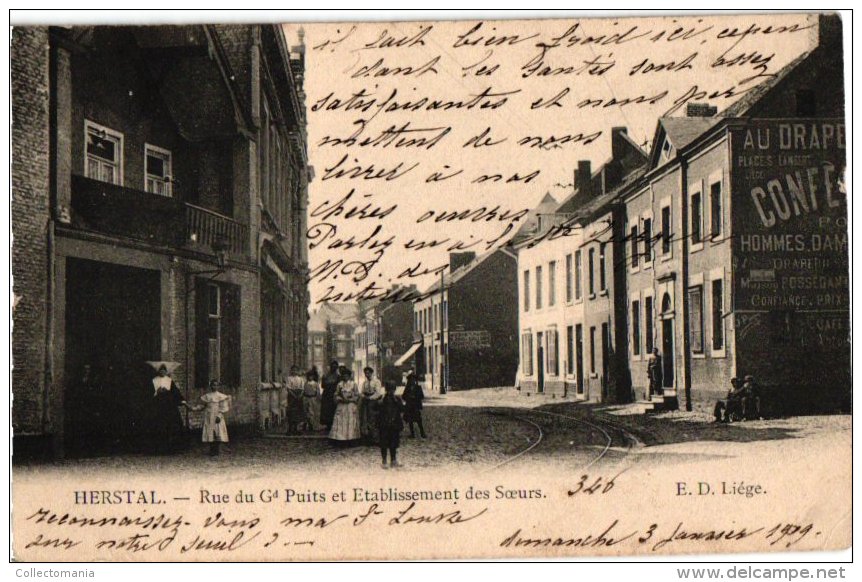 il fait bien froid ici, cepen
dant les Santés sont assez
satisfaisantes et nous per
mettent de nous
livrer à nos
chères œuvres
Parlez en à
N. D. de
AU DRAPE
CONFÈ
HOMMES, DAM
DRAPERI
Maison POSSÉDAN
CONFIANCE, PRIX
HERSTAL. — Rue du Gd Puits et Etablissement des Sœurs.
346
E. D. Liége.
Reconnaissez-vous ma Sr Louise
sur notre seuil ? —
dimanche 3 Janvier 1909.
Collectomania
www.delcampe.net